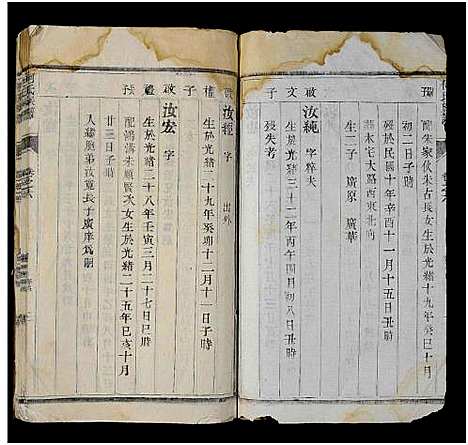 預
配朱家伙朱古長女生於光緒十九年癸巳十一月
初二日子時
歿於民國十年辛酉十一月十五日丑時
葬木宅大路西東北向
生二子 廣原 廣華
政 文 子
汝純 字粹夫
生於光緒三十二年丙午四月初八日丑時
殁失考
政 權 子
汝經 字 出外
生於光緒二十九年癸卯十二月十一日子時
政 禮 子
汝宏 字
生於光緒二十八年壬寅三月二十七日巳時
預
配鴻落朱順賢次女生於光緒二十五年己亥十月
廿三日子時
人繼胞弟汝寬長子廣庠為嗣